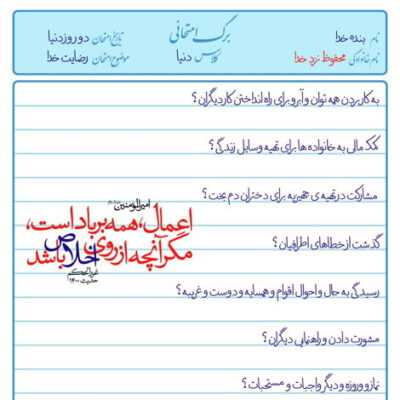 برگ امتحانی
نام بنده خدا
تاریخ امتحان دو روز دنیا
نام خانوادگی محفوظ نزد خدا
کلاس دنیا
موضوع امتحان رضایت خدا
به کار بردن همه توان و آبرو برای راه انداختن کار دیگران؟
کمک مالی به خانواده ها برای تهیه وسایل زندگی؟
مشارکت در تهیه ی جهیزیه برای دختران دم بخت؟
امیرالمومنین
اعمال، همه بر باد است،
مگر آنچه از روی اخلاص باشد
غررالحکم
حدیث ۱۴۰۰
گذشت از خطاهای اطرافیان؟
رسیدگی به حال و احوال اقوام و همسایه و دوست و غریبه؟
مشورت دادن و راهنمایی دیگران؟
نماز و روزه و دیگر واجبات و مستحبات؟